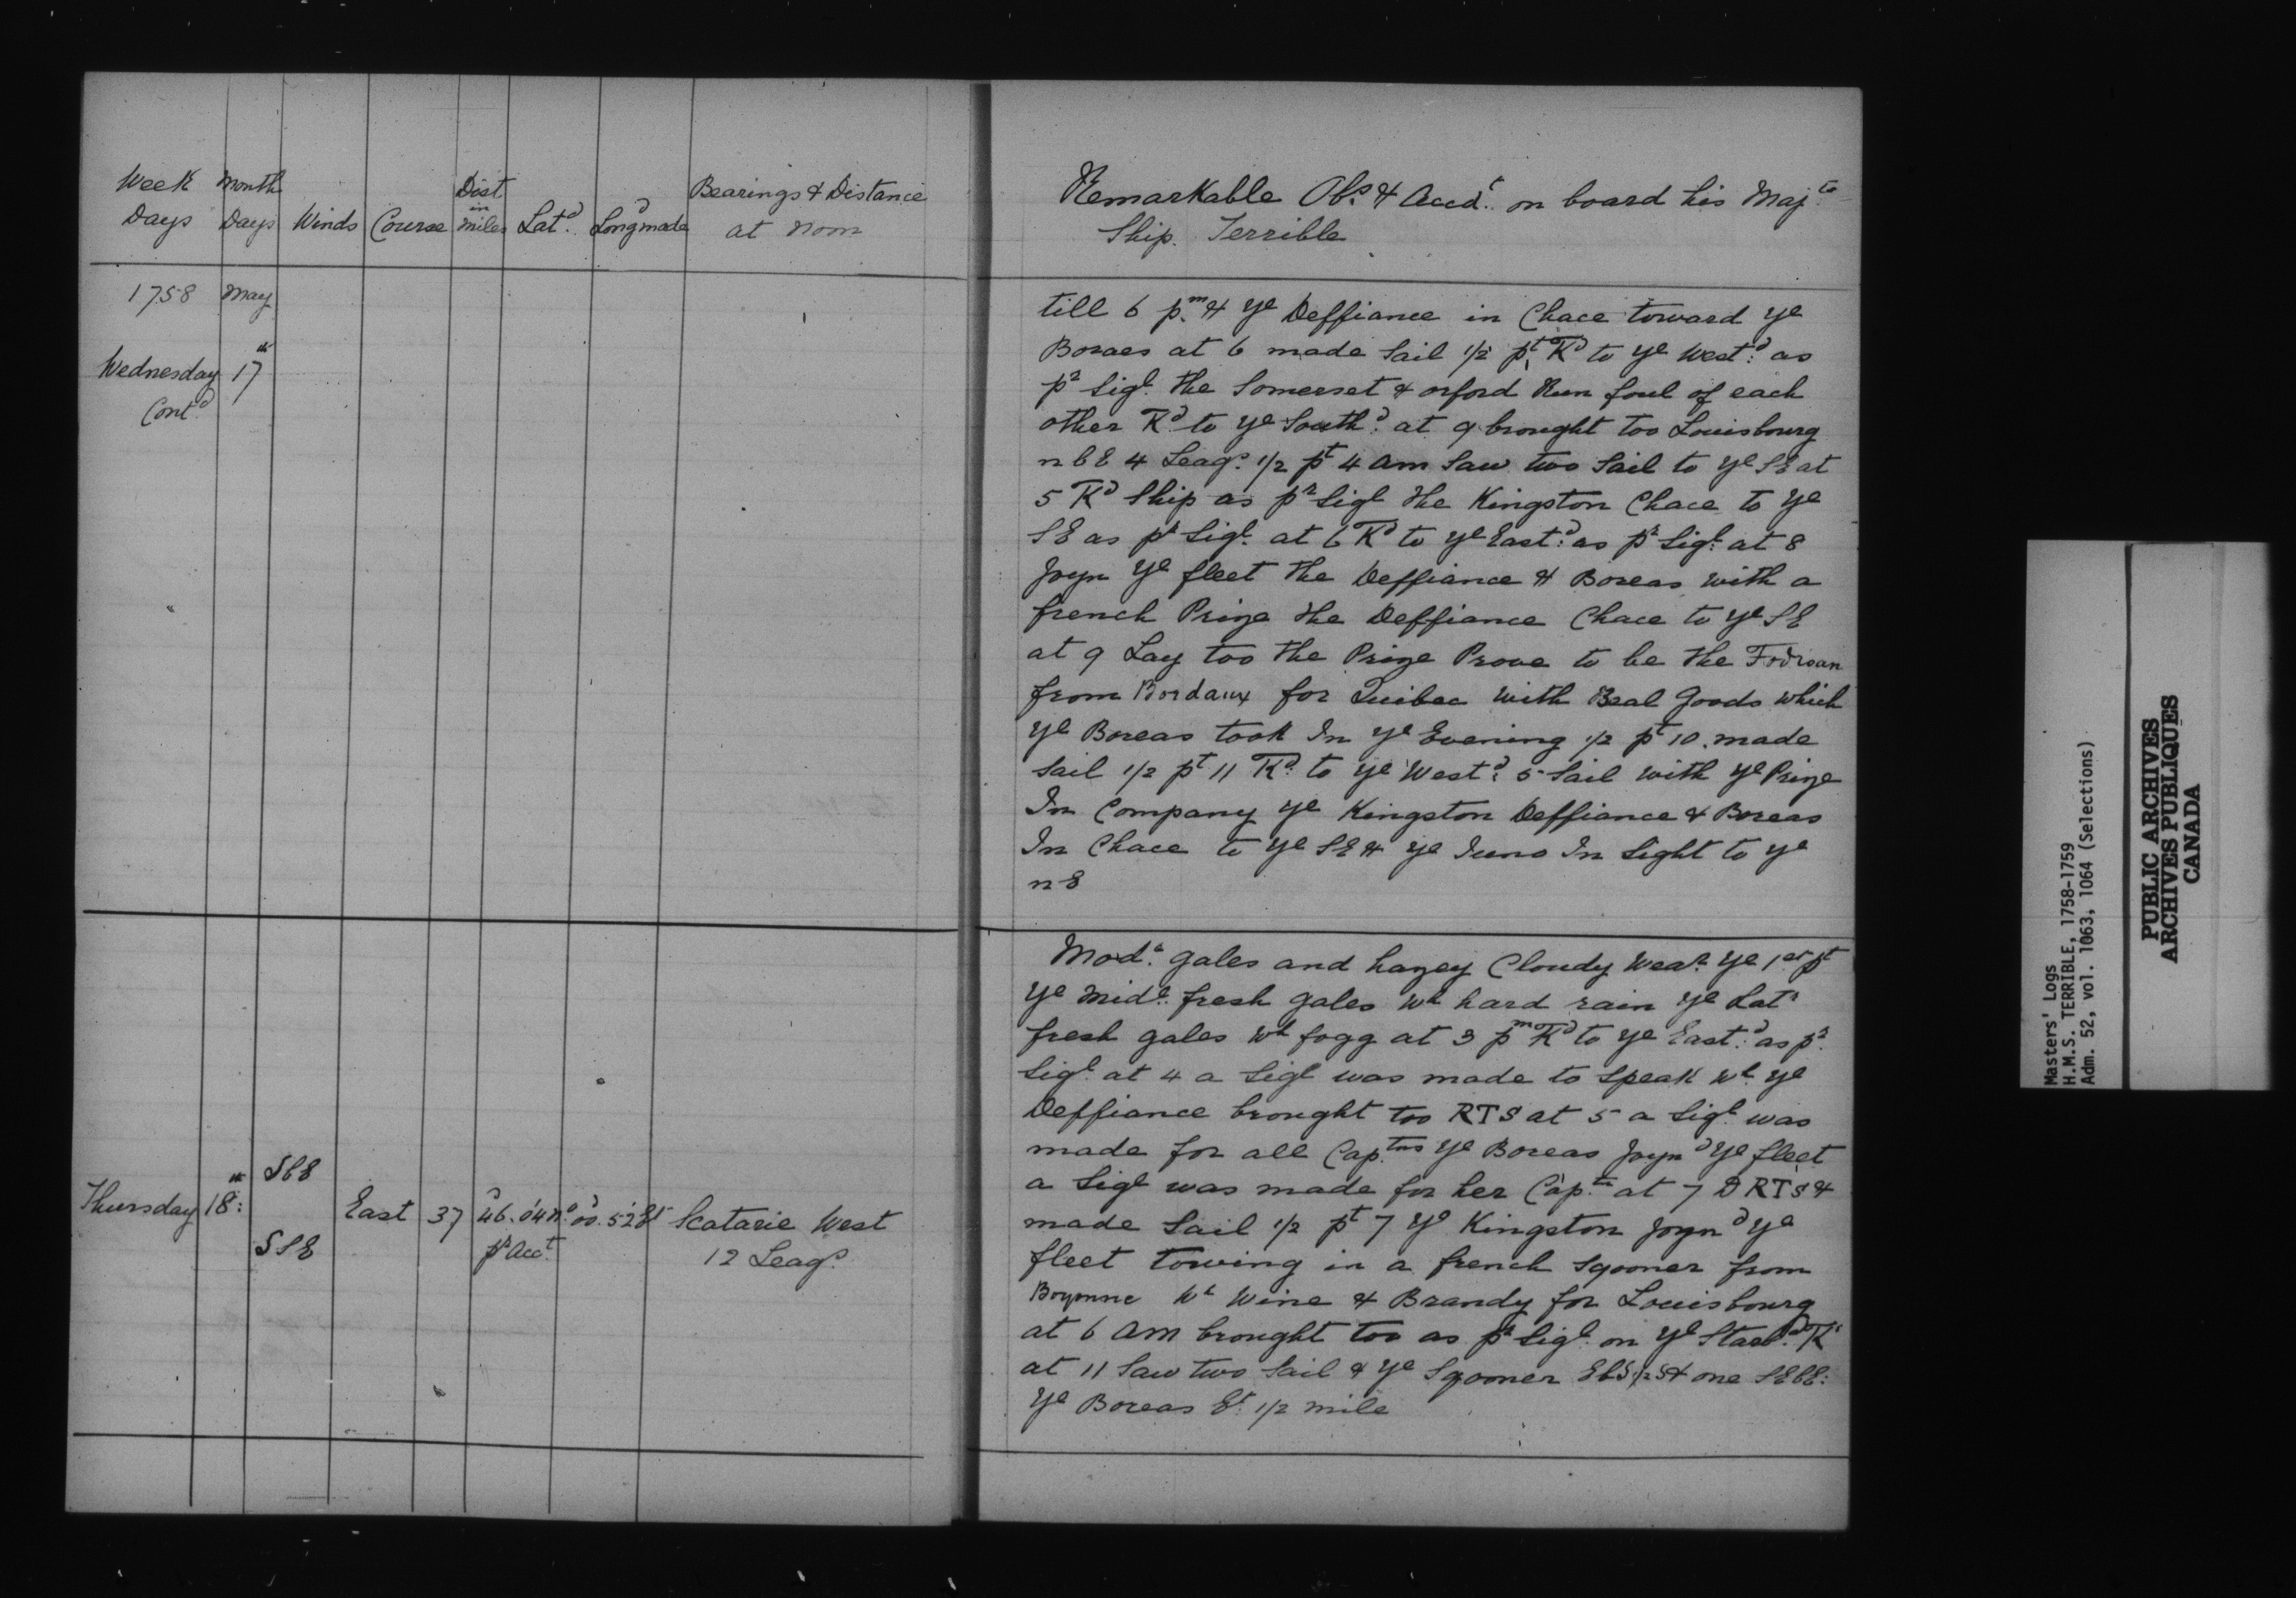 Week Days
Month Days
Winds
Course
Dist in miles
Latd.
Longd made
Bearings & Distance at noon
1758 May
Wednesday 17th
Contd
Remarkable Obs. & Accdt. on board his Majts
Ship. Terrible
till 6 p.m & ye Deffiance in Chace toward ye
Boraes at 6 made Sail 1/2 pt Kd to ye Westd: as
pr Sigl. the Somerset & orford Run foul of each
other Kd to ye Southd: at 9 brought too Louisbourg
n b E 4 Leags. 1/2 pt 4 am Saw two Sail to ye SE at
5 Kd Ship as pr Sigl the Kingston Chace to ye
SE as pr Sigl. at 6 Kd to ye Eastd: as pr Sigl: at 8
Joyn ye fleet the Deffiance & Boreas with a
french Prize the Deffiance Chace to ye SE
at 9 Lay too the Prize Prove to be the Fodroan
from Bordaux for Quibec with Beal Goods which
ye Boreas took In ye Evening 1/2 pt 10. made
Sail 1/2 pt 11 Kd. to ye Westd: 5 Sail with ye Prize
In Company ye Kingston Deffiance & Boreas
In Chace to ye SE & ye Juno In Sight to ye
n E
Thursday 18th:
SbE
SSE
East
37
46°.04' No
pr Acct.
00°.52' Et
Scatarie West
12 Leags.
Modt. gales and hazey Cloudy Wear. ye 1st pt
ye Midl. fresh gales wh hard rain ye Latr
fresh gales wh fogg at 3 pm Kd to ye Eastd: as pr.
Sigl. at 4 a Sigl was made to Speak wh. ye
Deffiance brought too RTS at 5 a Sigl. was
made for all Cap.tns ye Boreas Joynd ye fleet
a Sigl was made for her Cap.tn at 7 D RTS &
made Sail 1/2 pt 7 ye Kingston Joynd ye
fleet towing in a french Sqooner from
Boyonne wh Wine & Brandy for Louisbourg
at 6 am brought too as pr Sigl. on ye Starbd. K
at 11 Saw two Sail & ye Sqooner EbS 1/2 S & one SEbE:
ye Boreas Et. 1/2 mile
Masters' Logs
H.M.S. TERRIBLE, 1758-1759
Adm. 52, vol. 1063, 1064 (Selections)
PUBLIC ARCHIVES
ARCHIVES PUBLIQUES
CANADA